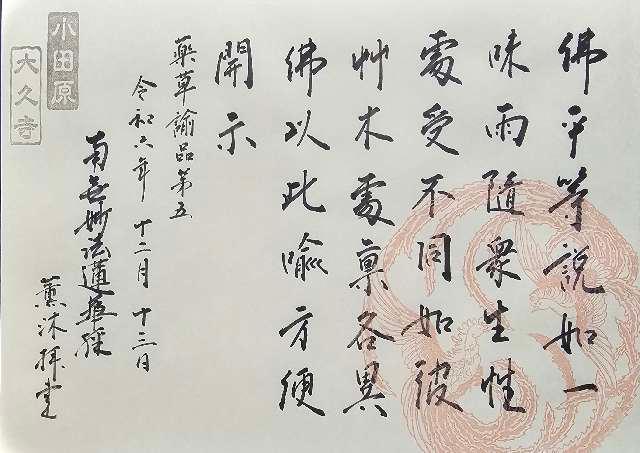 佛平等說如一
味雨隨衆生性
處受不同如彼
艸木處稟各異
佛以此喩方便
開示
藥草諭品第五
令和六年 十二月 十三日
南無妙法蓮華経
薫沐拝書
小田原
大久寺